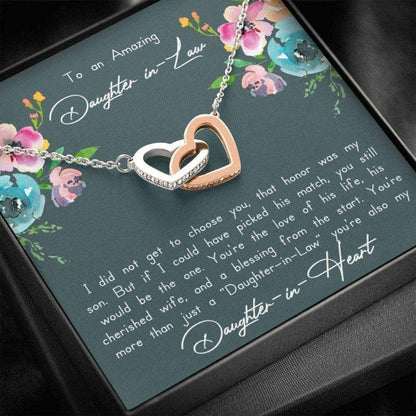 To an Amazing
Daughter-in-Law
I did not get to choose you, that honor was my
son. But if I could have picked his match, you still
would be the one. You're the love of his life, his
cherished wife, and a blessing from the start. You're
more than just a "Daughter-in-Law" you're also my
Daughter-in-Heart